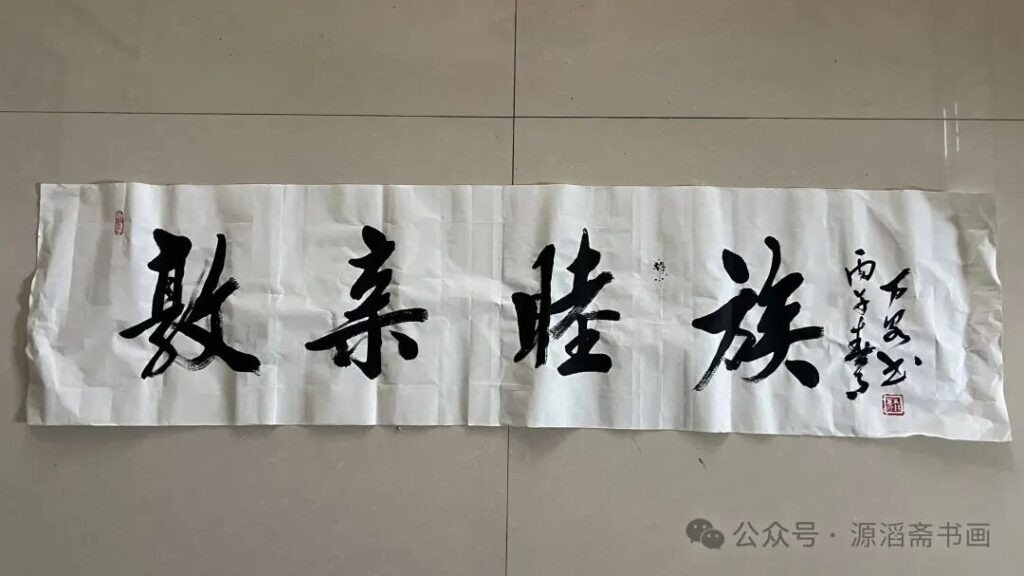 敦亲睦族
丙午春月
书
公众号·源滔斋书画